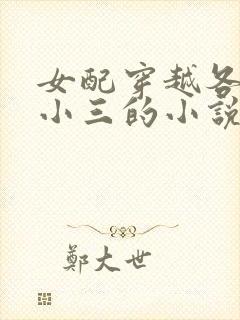 女配穿越各
小三的小說
鄭大世